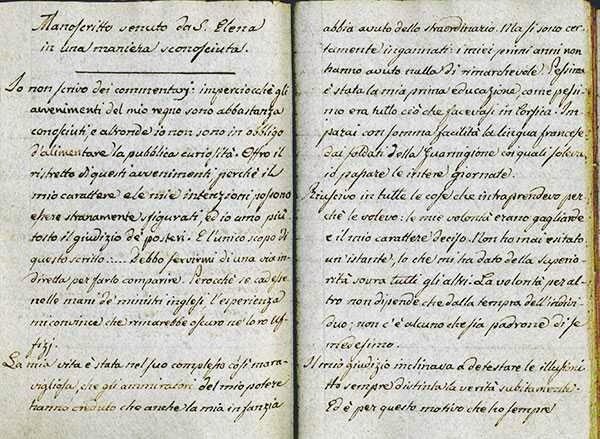 Manoscritto venuto da S. Elena
in una maniera sconosciuta.
Io non scrivo dei commentarj: imperciocchè gli
avvenimenti del mio regno sono abbastanza
conosciuti, e altronde io non sono in obbligo
d'alimentare la pubblica curiosità. Offro il
ristretto di questi avvenimenti, perchè il
mio carattere e le mie intenzioni possono
essere stranamente sfigurati, ed io amo più
tosto il giudizio de' posteri. È l'unico scopo di
questo scritto..... Debbo servirmi di una via in-
diretta per farlo comparire. Perocchè se cadesse
nelle mani de' ministri inglesi l'esperienza
mi convince che rimarebbe oscuro ne' loro uf-
fizj.
La mia vita è stata nel suo complesso così mara-
vigliosa, che gli ammiratori del mio potere
hanno creduto che anche la mia infanzia
abbia avuto dello straordinario. Ma si sono cer-
tamente ingannati: i miei primi anni non
hanno avuto nulla di rimarchevole. Pessima
è stata la mia prima educazione, come pessi-
mo era tutto ciò che facevasi in Corsica. Im-
parai con somma facilità la lingua francese
dai soldati della Guarnigione coi quali soleva
io passare le intere giornate.
Riuscivo in tutte le cose che intraprendevo per
chè le volevo: le mie volontà erano gagliarde
e il mio carattere deciso. Non ho mai esitato
un'istante, lo che mi ha dato della superio-
rità sovra tutti gli altri. La volontà per al-
tro non dipende che dalla tempra dell'indivi-
duo; non c'è alcuno che sia padrone di se
medesimo.
Il mio giudizio inclinava a detestare le illusioni
Ho sempre distinta la verità subitamente.
Ed è per questo motivo che ho sempre